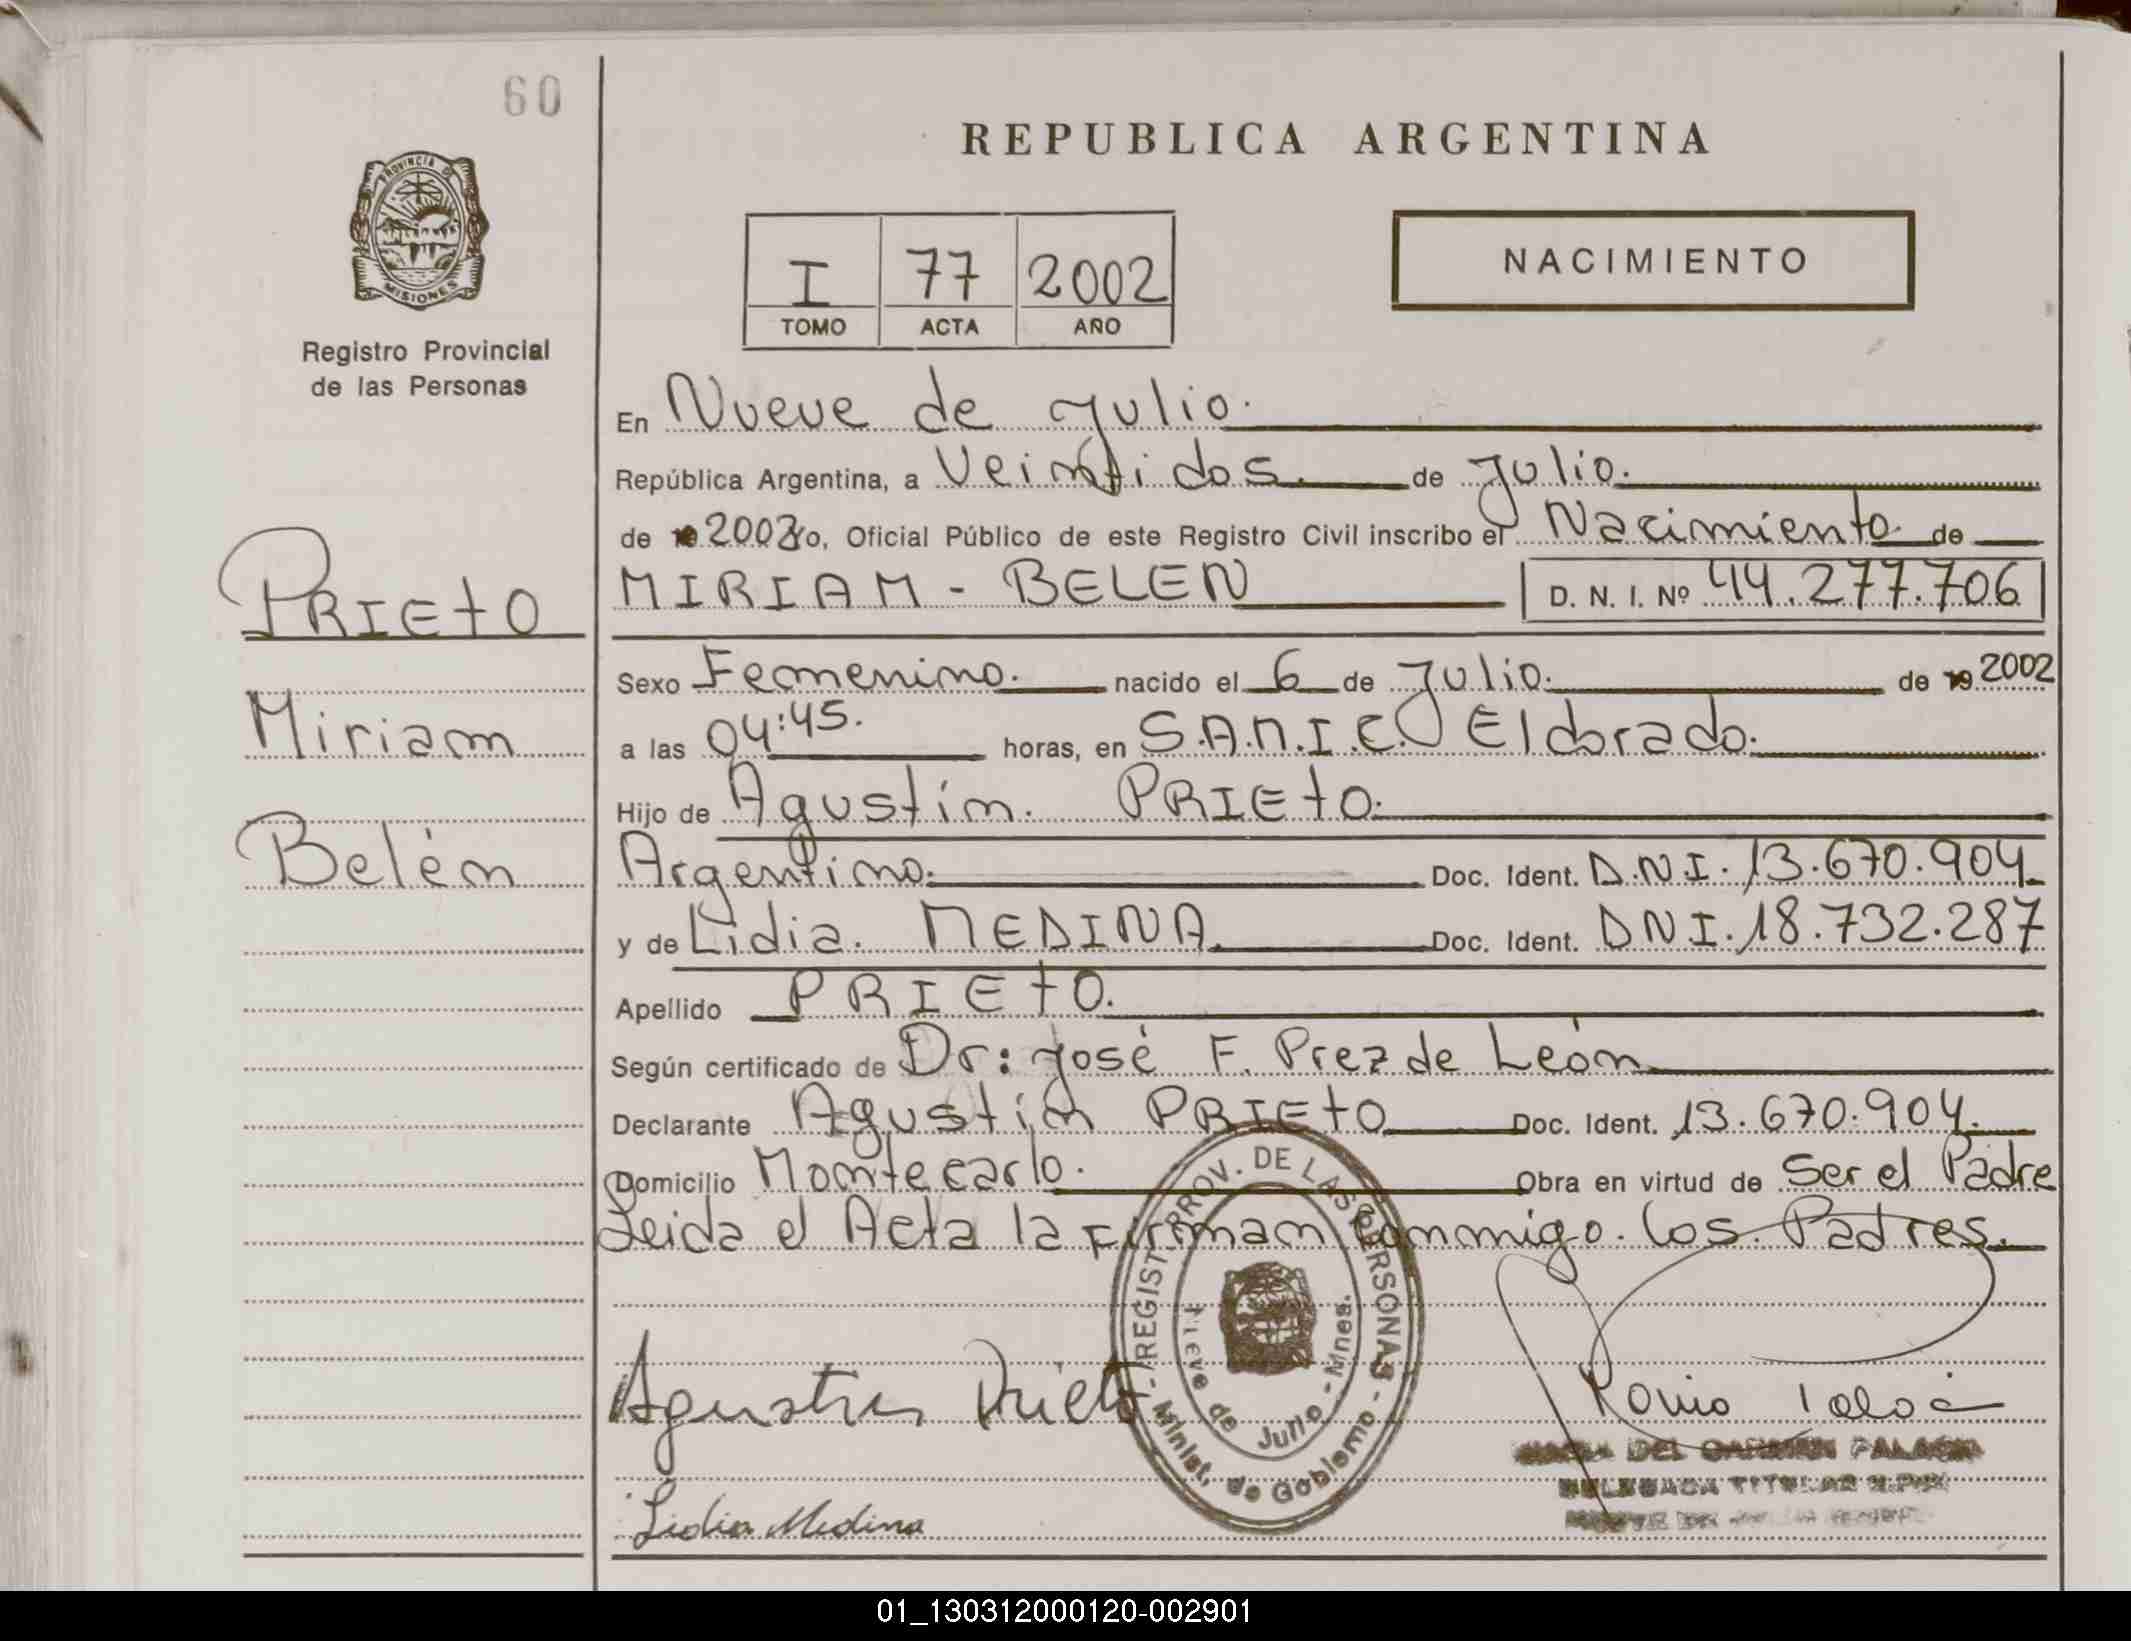 60
REPUBLICA ARGENTINA
PROVINCIA DE
MISIONES
Registro Provincial
de las Personas
I 77 2002
TOMO ACTA AÑO
NACIMIENTO
En Nueve de Julio.
República Argentina, a Veintidos. de Julio.
de 2002 Yo, Oficial Público de este Registro Civil inscribo el Nacimiento de
MIRIAM - BELEN D. N. I. Nº 44.277.706
PRIETO
Miriam
Belén
Sexo Femenino. nacido el 6 de Julio. de 19 2002
a las 04:45. horas, en S.A.M.I.C. Eldorado.
Hijo de Agustín. PRIETO.
Argentino. Doc. Ident. D.N.I. 13.670.904
y de Lidia. MEDINA. Doc. Ident. DNI. 18.732.287
Apellido PRIETO.
Según certificado de Dr: José F. Prez de León
Declarante Agustín PRIETO Doc. Ident. 13.670.904.
Domicilio Montecarlo. Obra en virtud de Ser el Padre
Leida el Acta la Firman Conmmigo. los Padres.
- REGIST. PROV. DE LAS PERSONAS -
Minist. de Gobierno
Nueve de Julio - Mnes.
Agustin Prieto
DEL CARMEN
TITULAR
Lidia Medina
01_130312000120-002901